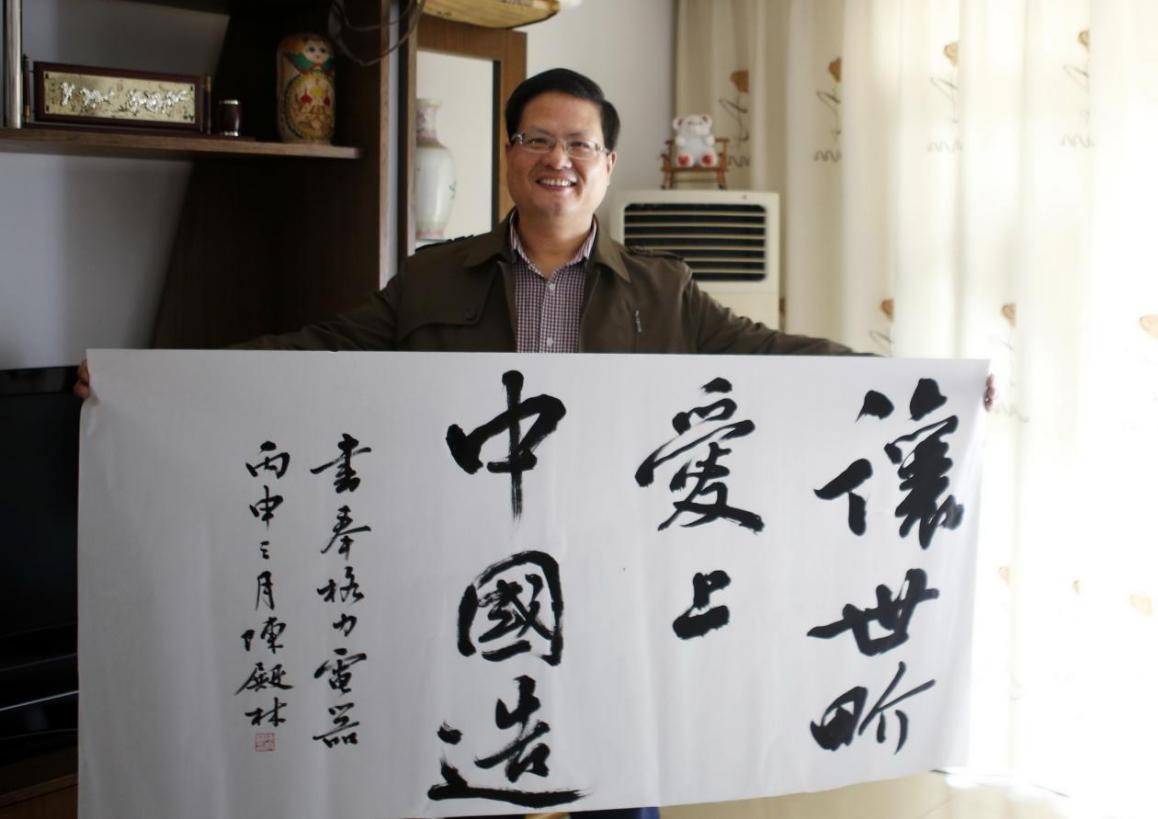 讓世界
愛上
中國造
書奉格力電器
丙申三月陳殿林